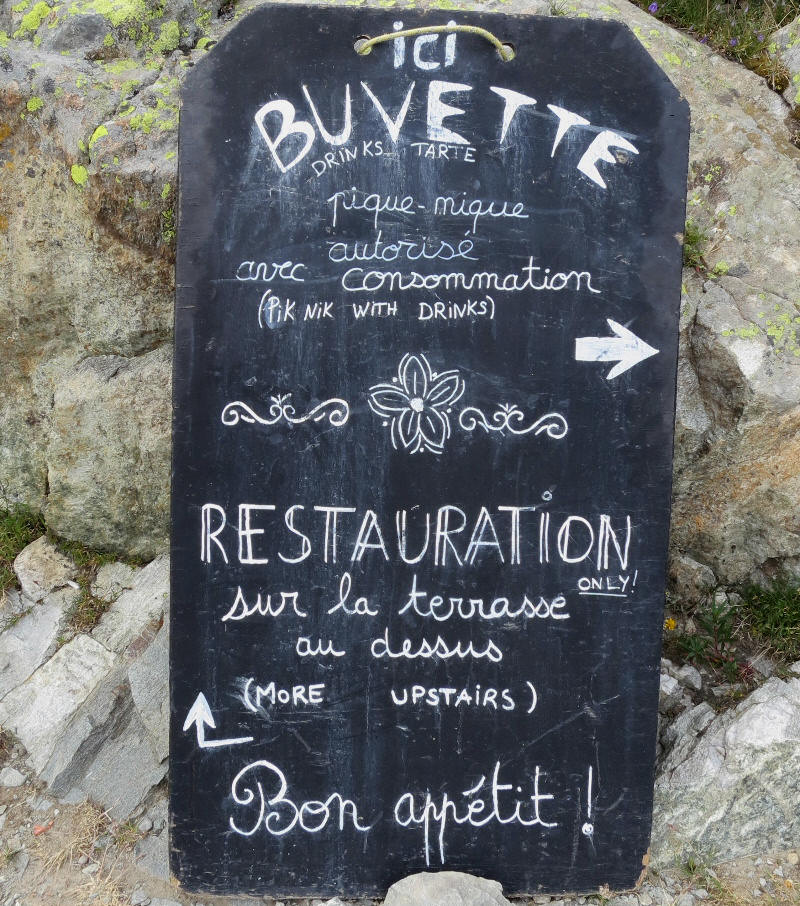 ici
BUVETTE
DRINKS TARTE
pique-nique
autorisé
avec consommation
(PIK NIK WITH DRINKS)
RESTAURATION
ONLY!
sur la terrasse
au dessus
(MORE UPSTAIRS)
Bon appétit !